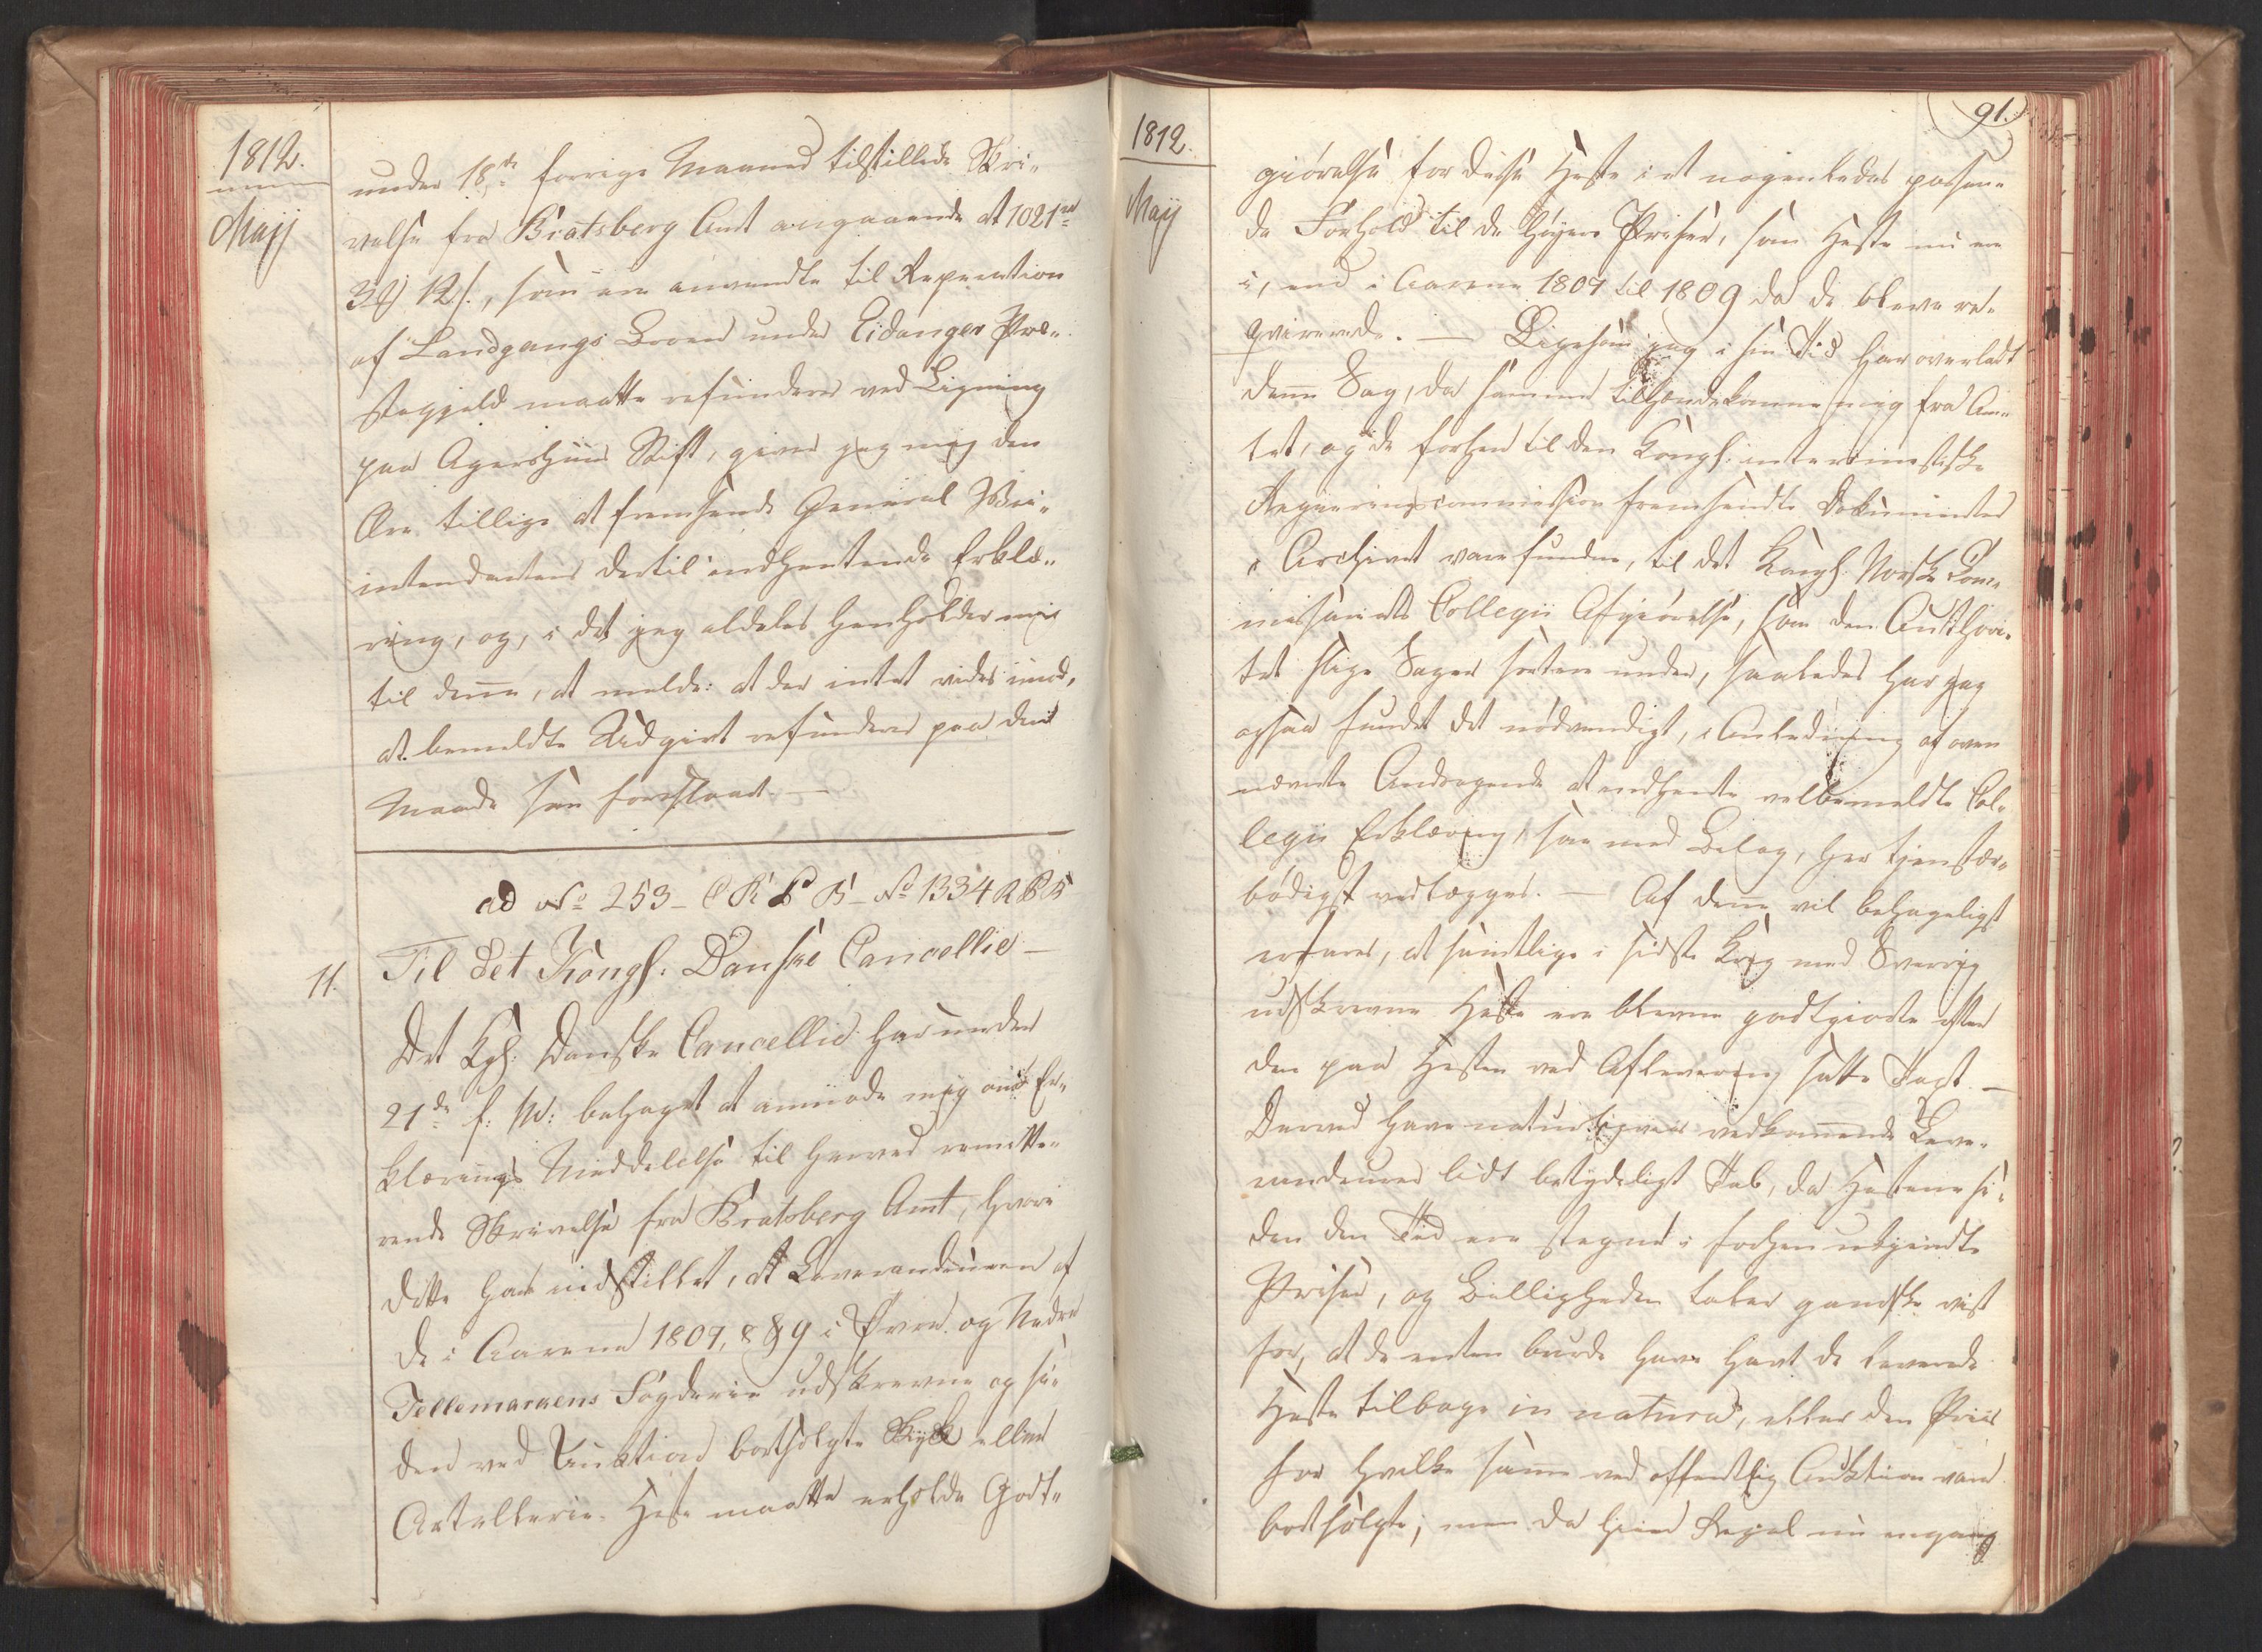 1812.
Maij
under 18de forrige Maaned tilstillede Skri-
velse fra Bratsberg Amt angaaende at 1021 rd
3 # 12 s., som ere anvendte til Reparation
af Landgangs Broen under Eidanger Præ-
stegjeld maatte refunderes ved Ligning
paa Agershuus Stift, giver jeg mig den
Ære tillige at fremsende General Vei-
intendantens dertil indhentede Erklæ-
ring, og, i det jeg aldeles henholder mig
til denne, at melde: at der intet vides imod,
at bemeldte Udgivt refunderes paa den
Maade som foreslaaet. —
ad No 253 - C R P B - No 1334 R B B
11.
Til det Kongl: Danske Cancellie —
Det Kgl: Danske Cancellie har under
21de f: M: behaget at anmode mig om Er-
klærings Meddelelse til hærved remitte-
rende Skrivelse fra Bratsberg Amt, hvori
dette har indstillet, at Leverandeuren af
de i Aarene 1807, 8 & 9 i Øvre og Nedre
Tellemarkens Fogderie udskrevne og si-
den ved Auktion bortsolgte Ryk eller
Artillerie-Heste maatte erholde Godt-
91.
1812.
Maij
giörelse for disse Heste i et nogenledes passen-
de Forhold til de höyere Priser, som Heste nu ere
i, end i Aarene 1807 til 1809 da de bleve re-
qvirerede. — Ligesom jeg i sin Tid har overladt
denne Sag, da samme tilhændekom mig fra Am-
tet, og de forhen til den Kongl: interimistiske
Regjeringscommission fremsendte Dokumenter
i Archivet vare fundne, til det Kongl: Norske Com-
missariats Collegii Afgiörelse, som den Authori-
tet slige Sager sortere under, saaledes har jeg
ogsaa fundet det nödvendigt, i Anledning af oven
nævnte Andragende at indhente velbemeldte Col-
legii Erklæring, som med Bilag, her tjenstær-
bödigst vedlægges. — Af denne vil behageligst
erfares, at samtlige i sidste Krig med Sverrig
udskrevne Heste ere blevne godtgiorte efter
den paa Hesten ved Aflevering satte Taxt. —
Derved have naturligviis vedkommende Leve-
randeurer lidt betydeligt Tab, da Hestene si-
den den Tid ere stegne i forhen ukjendte
Priser, og Billigheden taler gandske vist
for, at de enten burde have havt de leverede
Heste tilbage in natura, eller den Priis
for hvilke samme ved offentlig Auktion vare
bortsolgte; men da hiin Regel nu engang